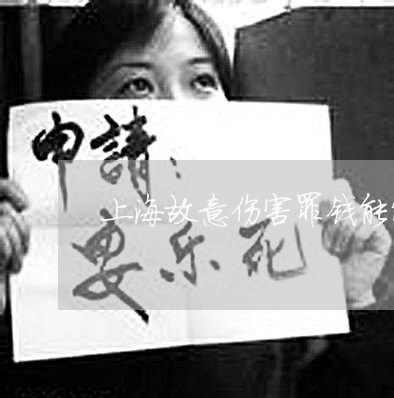 申請：
上海故意伤害罪钱能
安乐死